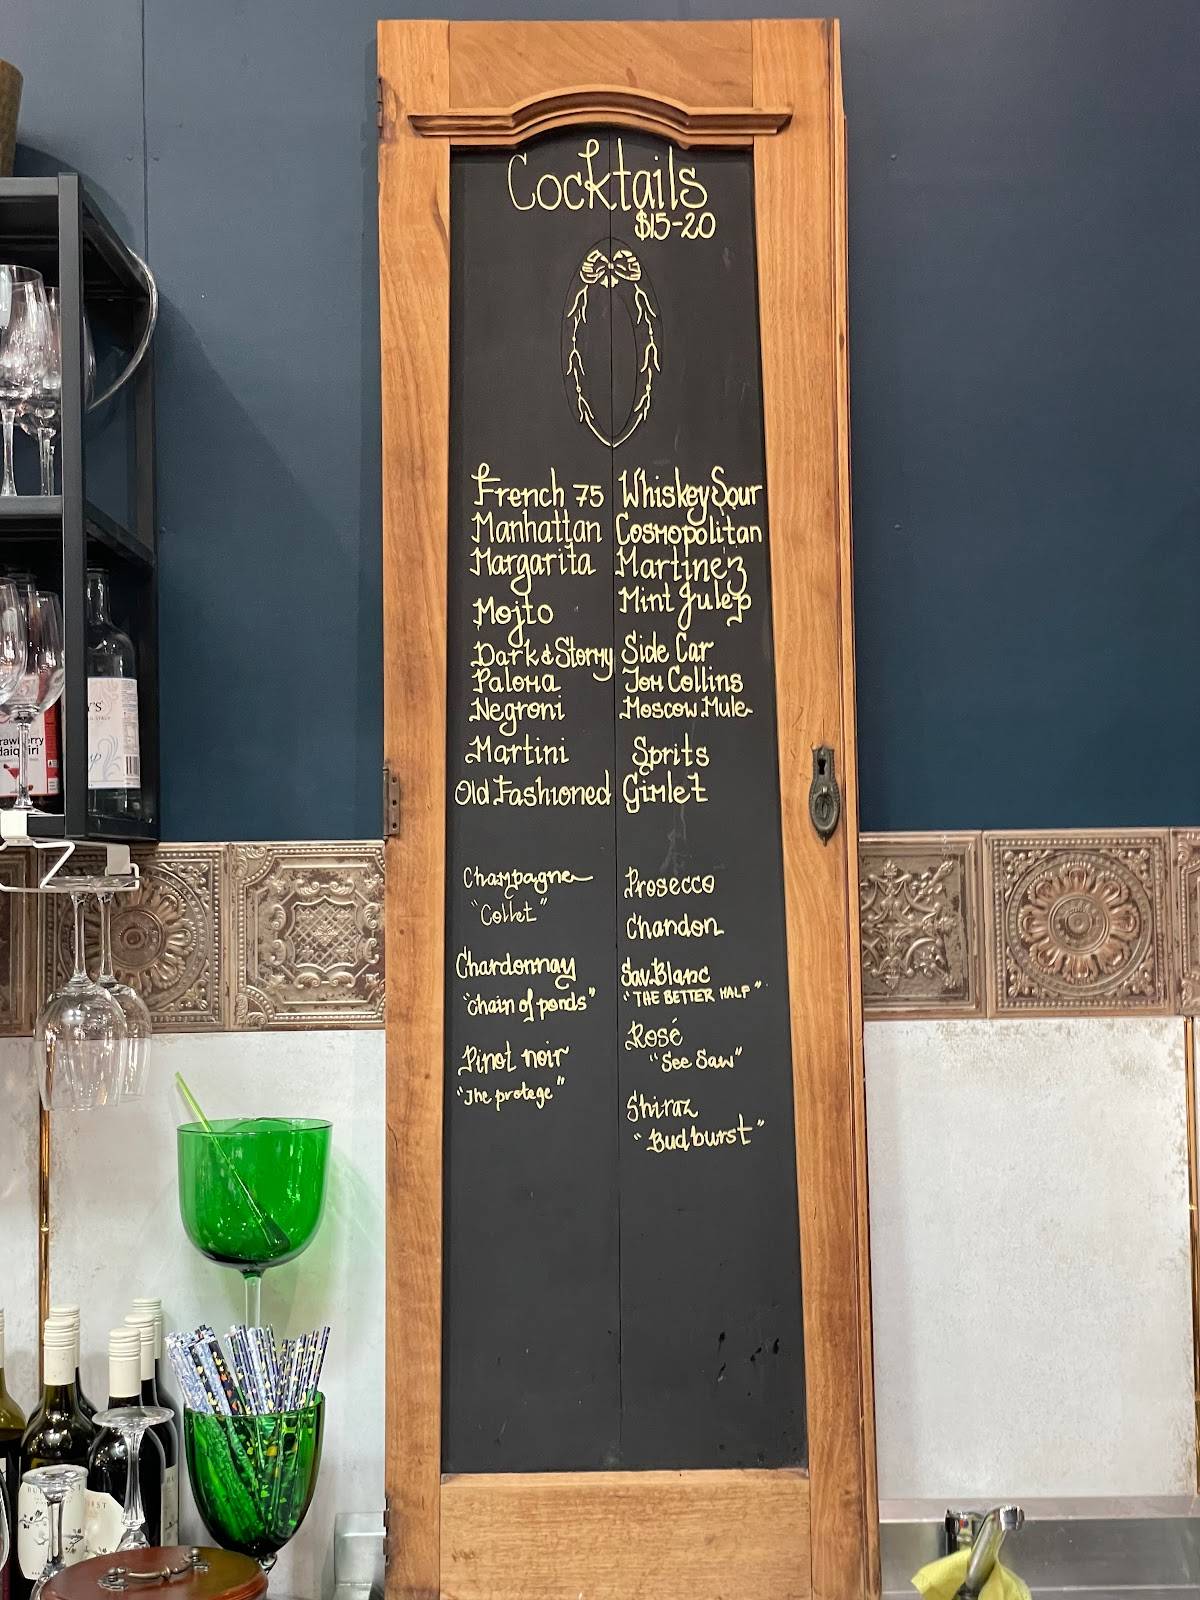 Cocktails
$15-20
French 75
Manhattan
Margarita
Mojto
Dark & Stormy
Paloma
Negroni
Martini
Old Fashioned
Whiskey Sour
Cosmopolitan
Martinez
Mint Julep
Side Car
Tom Collins
Moscow Mule
Sprits
Gimlet
Champagne
"Collet"
Chardonnay
"Chain of ponds"
Pinot noir
"The protege"
Prosecco
Chandon
Sav.Blanc
"THE BETTER HALF"
Rosé
"See Saw"
Shiraz
"Budburst"
daiquiri